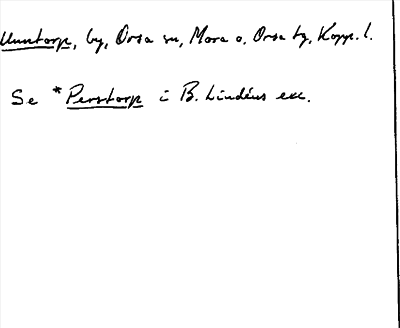 Unntorp, by, Orsa sn, Mora o. Orsa tg, Kopp. l.
Se *Perstorp i B. Lindéns exc.